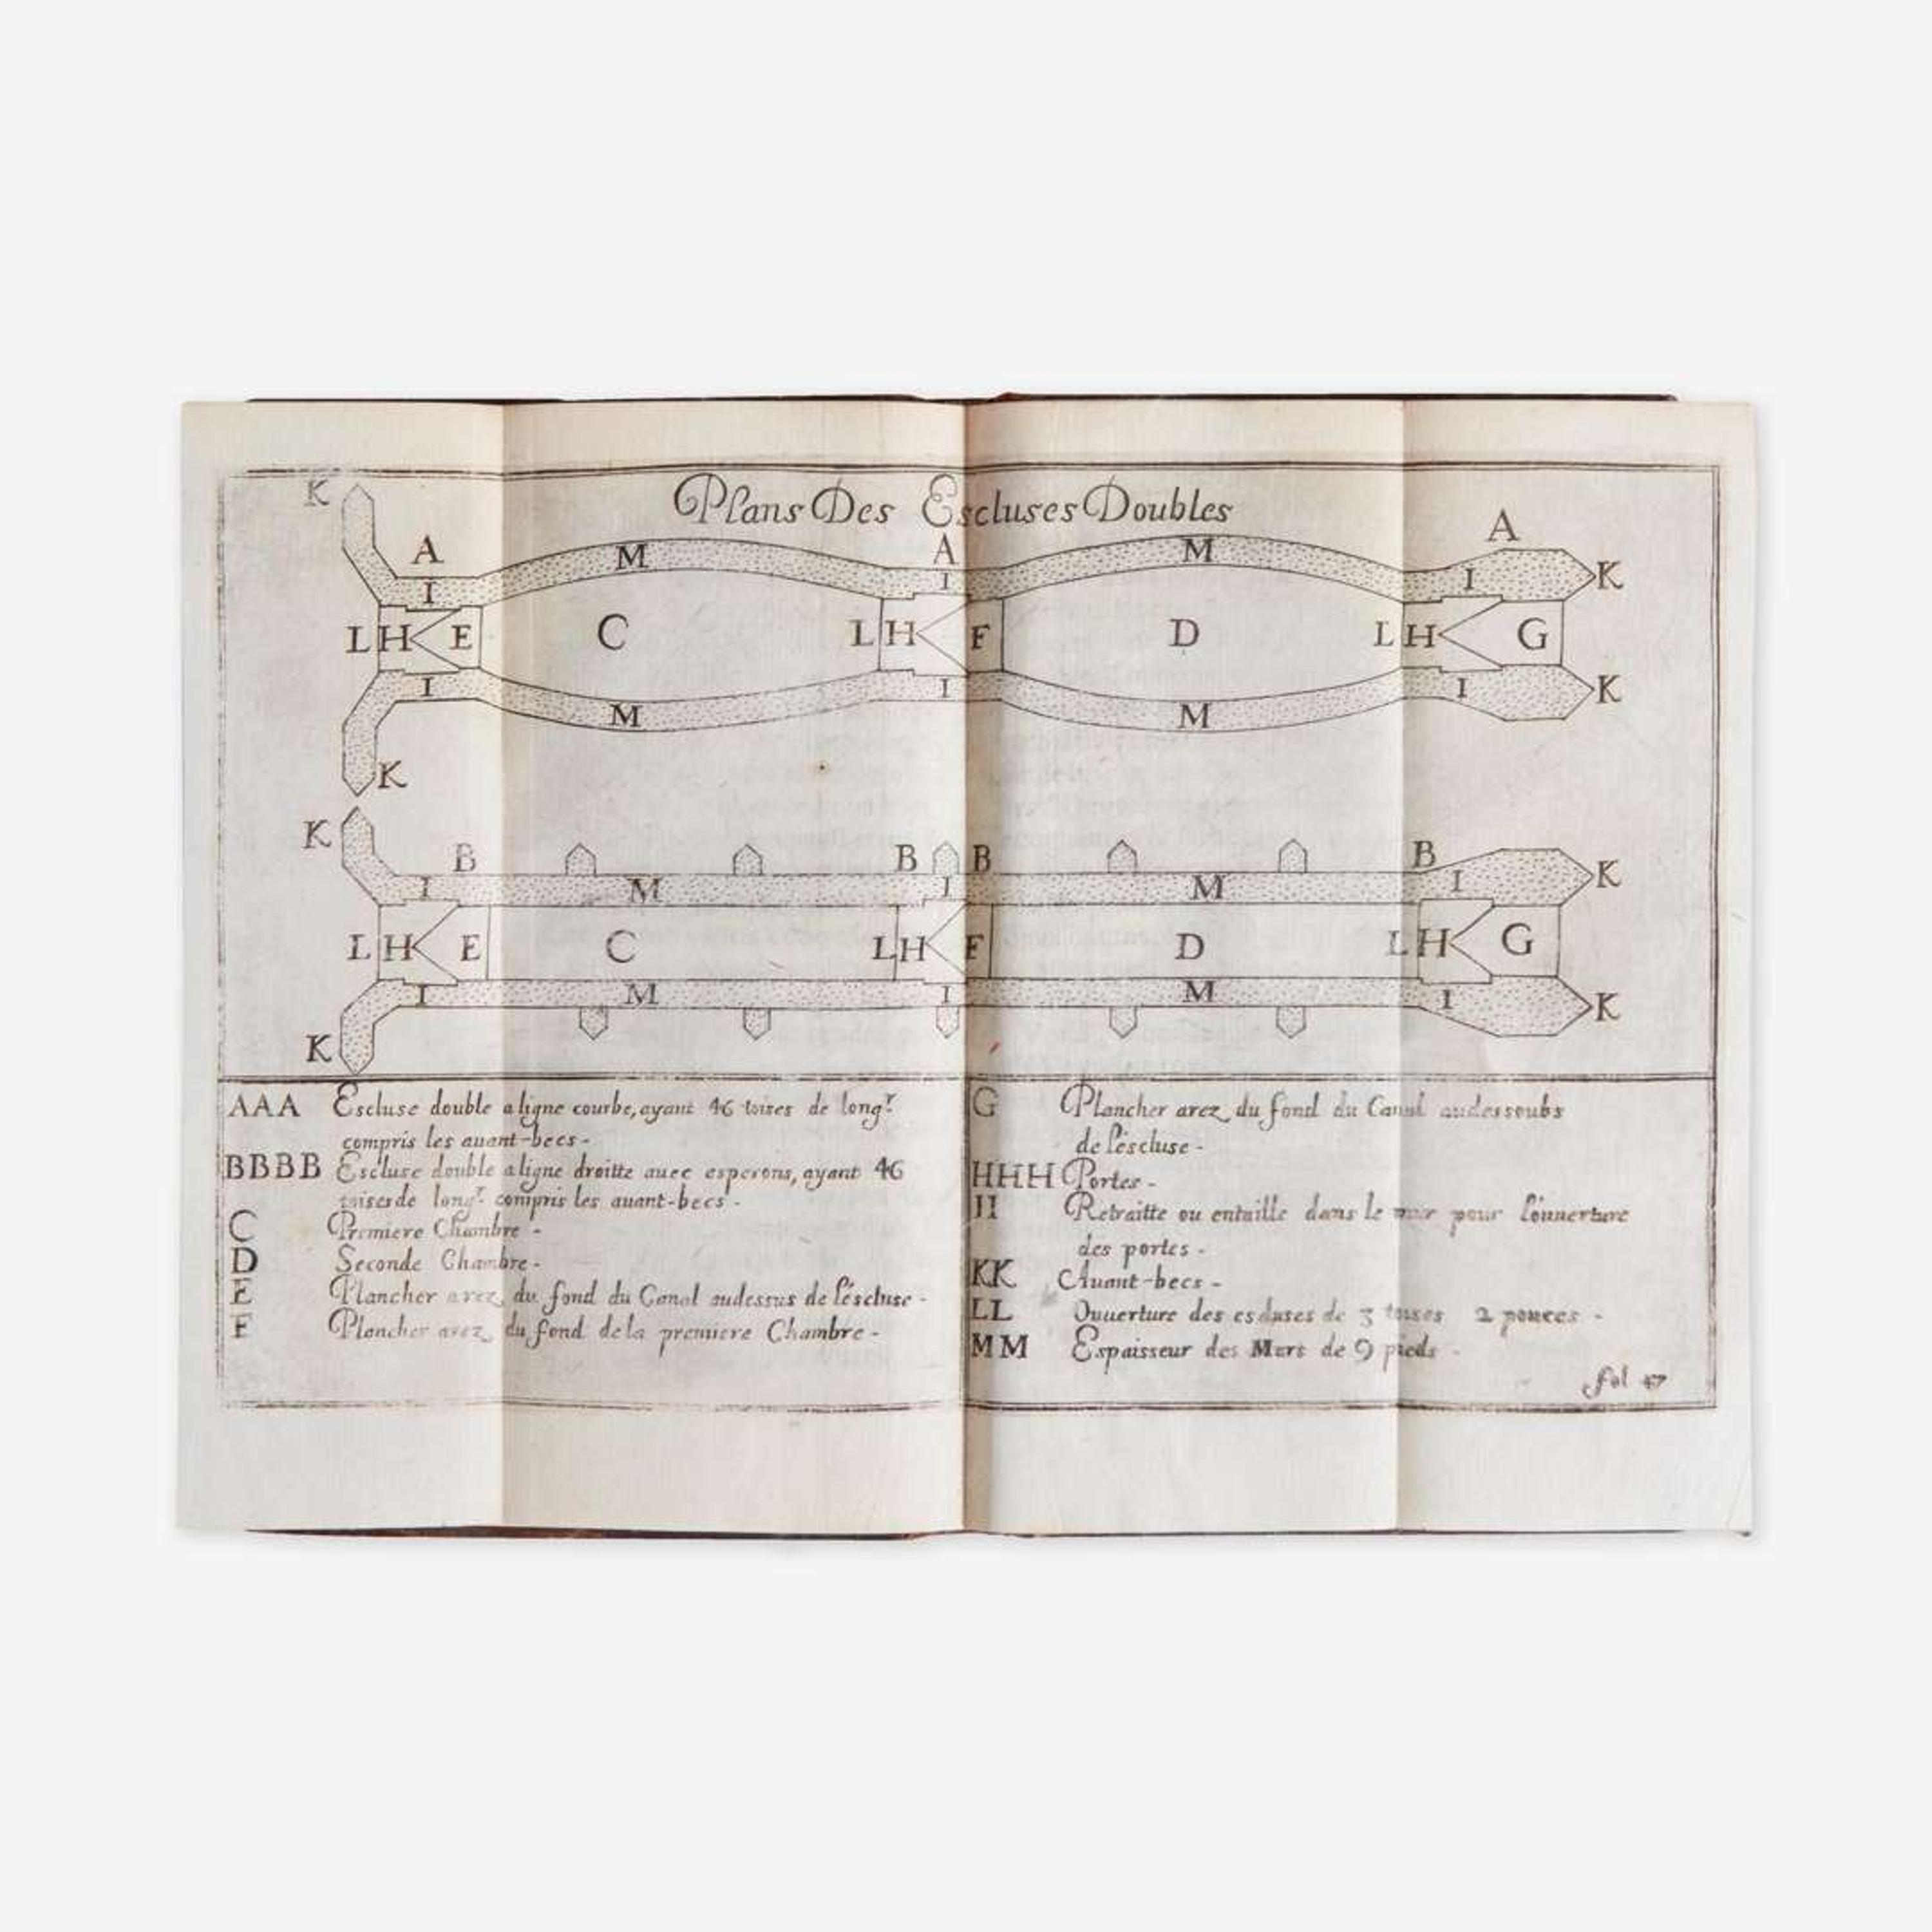 Plans Des Escluses Doubles
K
A A A
M M
I I I K
L H E C L H F D L H G
I I I K
M M
K
K
B B B B
I M I M I K
L H E C L H F D L H G
I M I M I K
K
AAA Escluse double a ligne courbe, ayant 46 toises de longr
compris les auant-becs -
BBBB Escluse double a ligne droitte auec esperons, ayant 46
toises de longr. compris les auant-becs -
C Premiere Chambre -
D Seconde Chambre -
E Plancher arez du fond du Canal audessus de l'éscluse -
F Plancher arez du fond de la premiere Chambre -
G Plancher arez du fond du Canal audessoubs
de l'éscluse -
HHH Portes -
II Retraitte ou entaille dans le mur pour l'ouuerture
des portes -
KK Auant-becs -
LL Ouuerture des escluses de 3 toises 2 pouces -
MM Espaisseur des Murs de 9 pieds -
fol 47